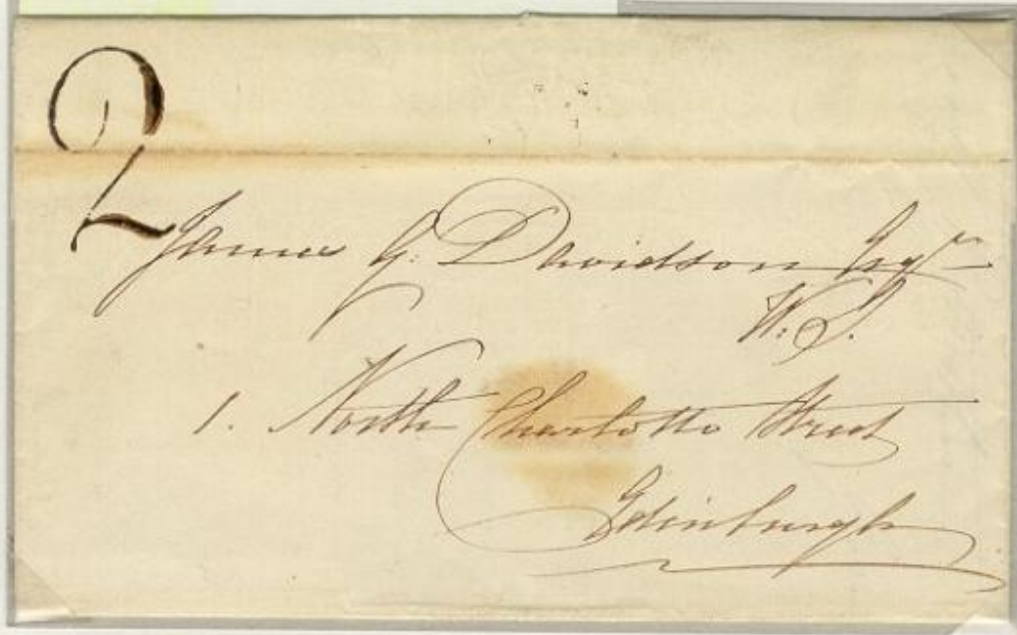 2
James G. Davidson Esqr
W.S.
1. North Charlotte Street
Edinburgh